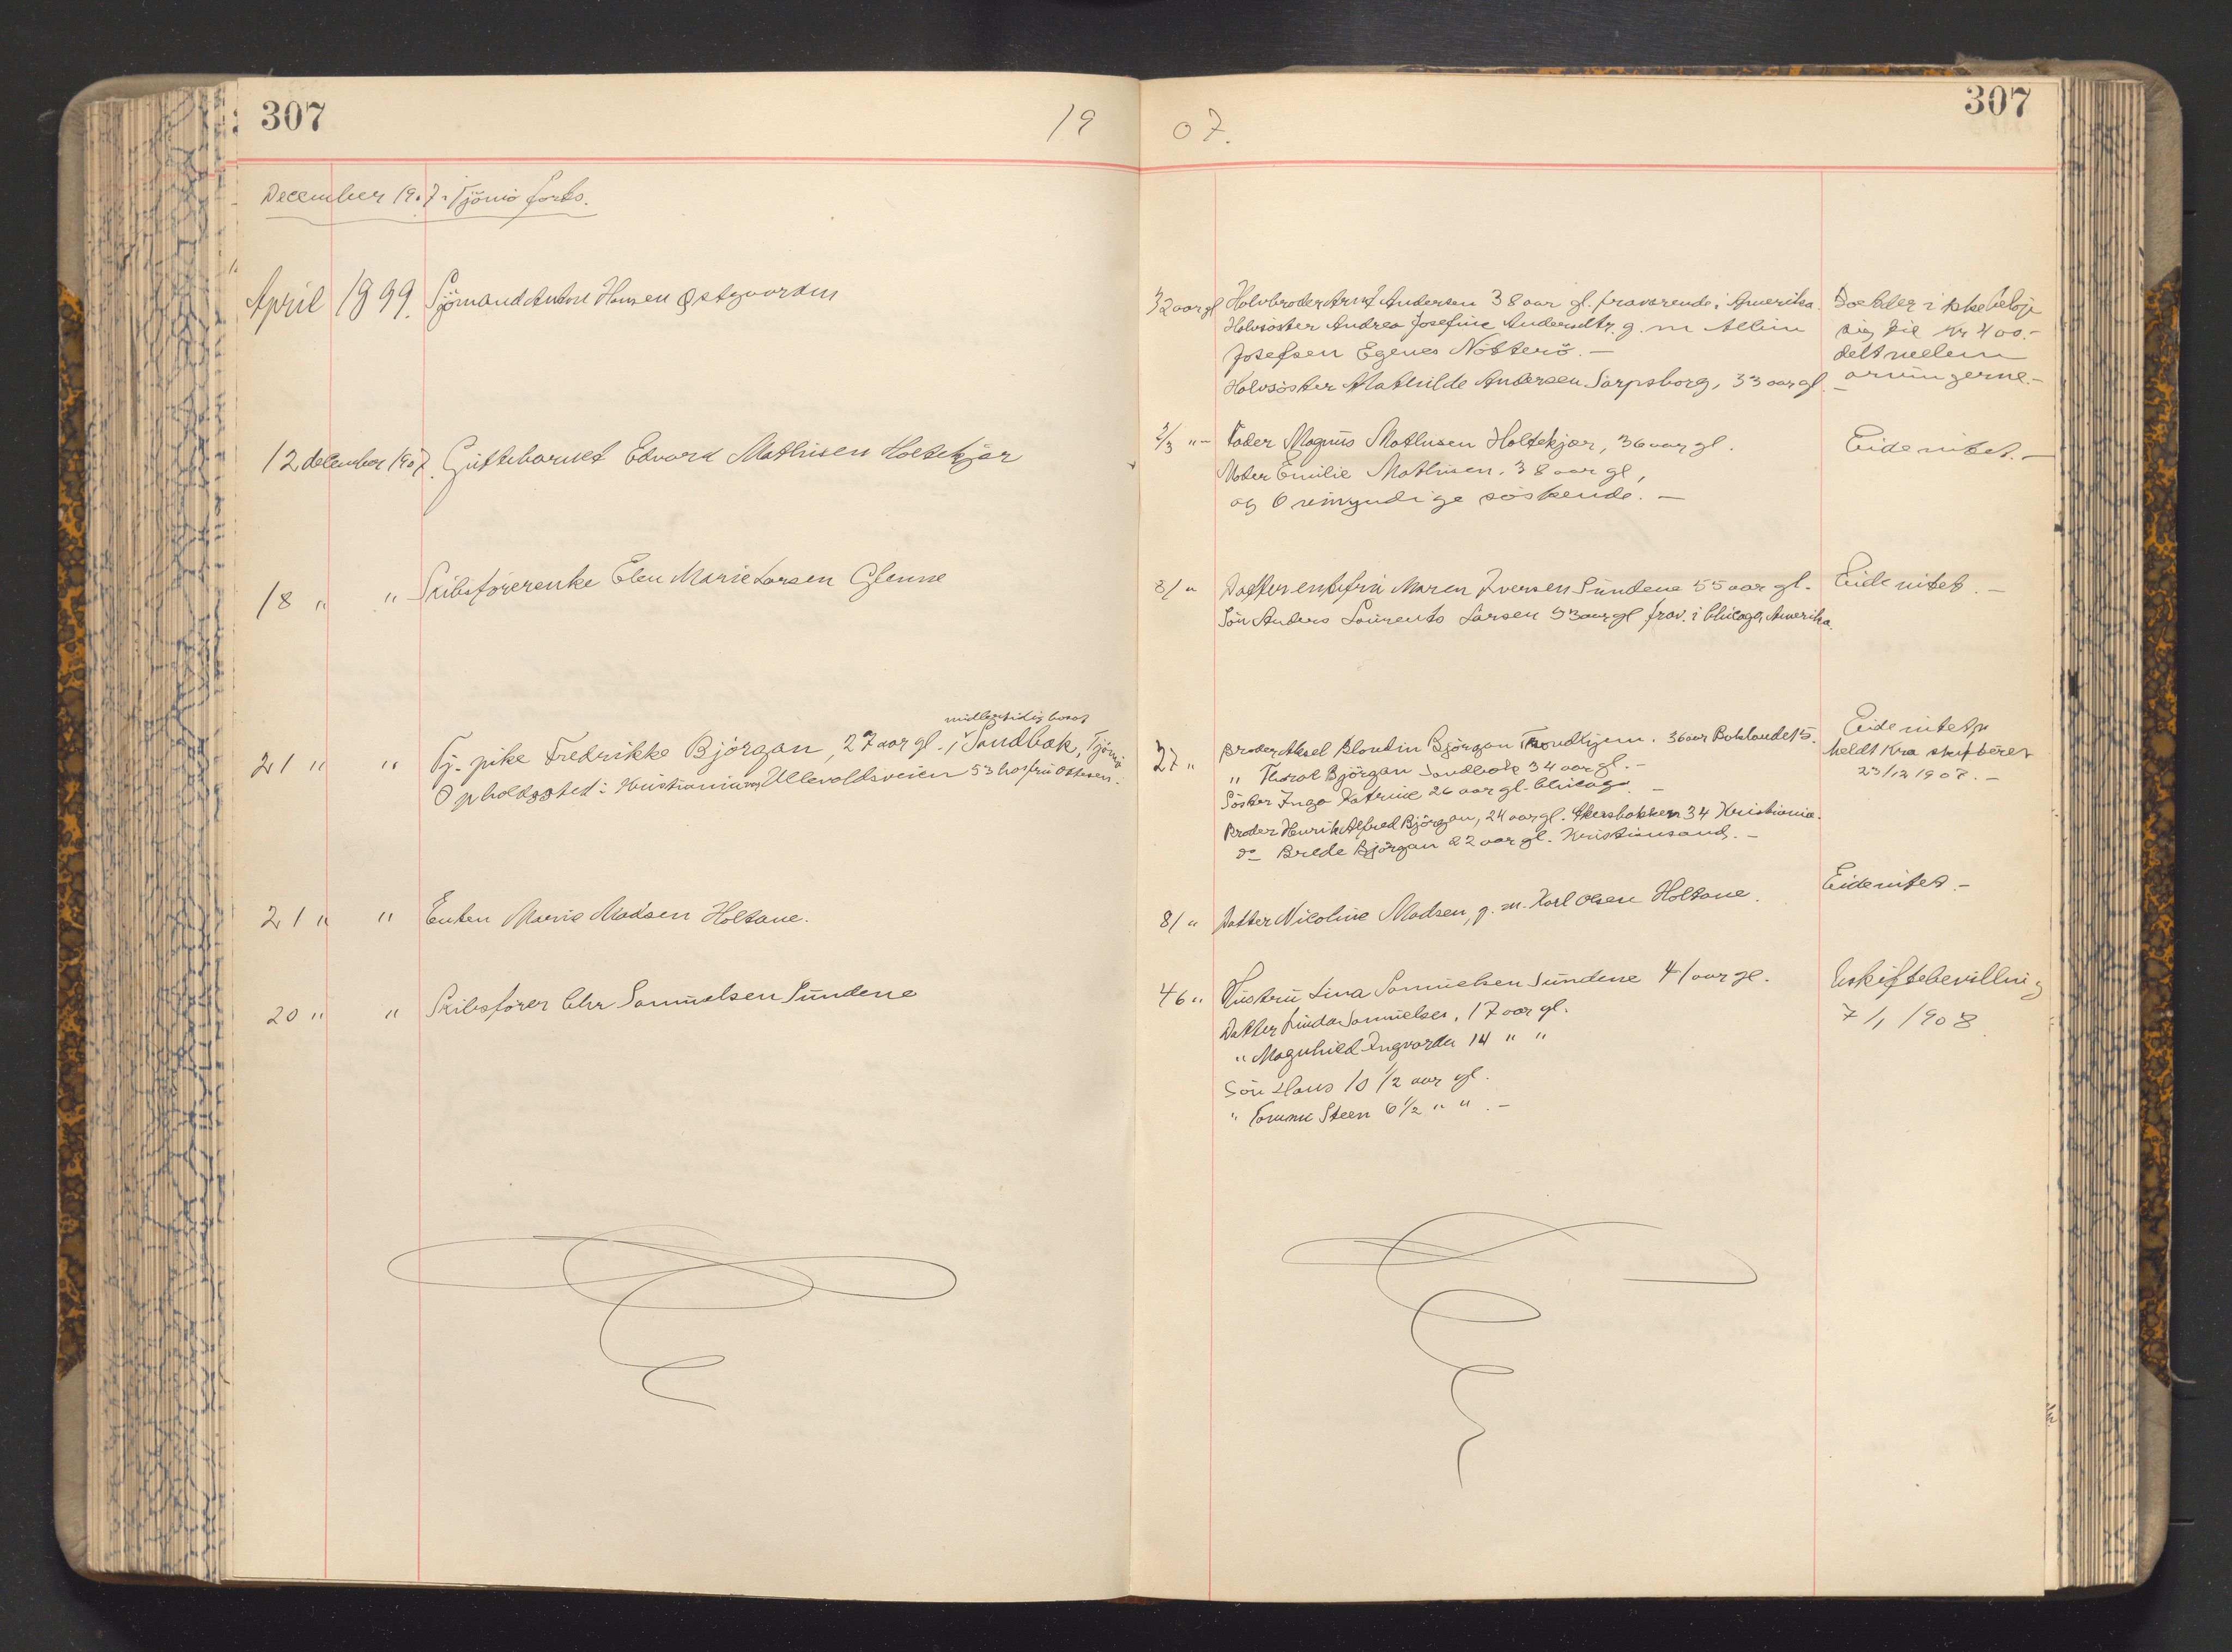 307
19
07.
307
December 1907. Tjömö forts.
April 1899. Sjömand Anton Hansen Østgaarden
32 aar gl Halvbroder Arnt Andersen 38 aar gl. fraværende i Amerika.
Halvsöster Andrea Josefine Andersdtr. g. m. Albin
Josefsen Egenes Nötterö. —
Halvsöster Mathilde Andersen Sarpsborg, 33 aar gl. —
Boet der ikke beløp
sig til Kr 400.-
delt mellem
arvingerne.-
12 december 1907. Guttebarnet Edvard Mathisen Holtekjær
2/3 "- Fader Magnus Mathisen Holtekjær, 36 aar gl.
Moder Emilie Mathisen. 38 aar gl,
og 6 umyndige söskende. —
Eide intet. —
18 " " Skibsförerenke Elen Marie Larsen Glenne
81 " Datter enkefru Maren Iversen Sundene 55 aar gl.
Sön Anders Laurents Larsen 53 aar gl frav. i Chicago, Amerika.
Eide intet. —
midlertidig bosat
21 " " Tj. pike Fredrikke Björgan, 27 aar gl. i Sandbæk, Tjömö
Opholdssted: Kristiania, Ullevoldsveien 53 hos fru Ottesen.
27 " Broder Aksel Blondin Björgan Trondhjem. 36 aar Baklandet 5.
" Thoral Björgan Sandbæk 34 aar gl. —
Söster Inga Katrine 26 aar gl. Chicago. —
Broder Henrik Alfred Björgan, 24 aar gl. Akersbakken 34 Kristiania.
do Brede Björgan 22 aar gl. Kristiansand. —
Eide intet
meldt Kra skifteret
23/12 1907. —
21 " " Enken Marie Madsen Holtane.
81 " Datter Nicoline Madsen, g. m. Karl Olsen Holtane.
Eide intet. —
20 " " Skibsförer Chr Samuelsen Sundene
46 " Hustru Lina Samuelsen Sundene 41 aar gl.
Datter Linda Samuelsen, 17 aar gl.
" Magnhild Ingvarda 14 " "
Sön Hans 10 1/2 aar gl.
" Steen 6 1/2 " ". —
Uskiftebevilling
7/1 1908